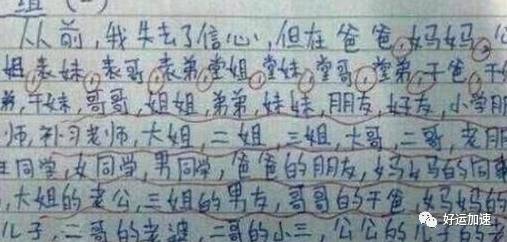 从前,我失去了信心,但在爸爸,妈妈,
姐,表妹,表哥,表弟,堂姐,堂妹,堂哥,堂弟,干爸,干
弟,干妹,哥哥,姐姐,弟弟,妹妹,朋友,好友,小学朋
师,补习老师,大姐,二姐,三姐,大哥,二哥,老朋
同学,女同学,男同学,爸爸的朋友,妈妈的同事
,大姐的老公,三姐的男友,哥哥的干爸,妈妈的
儿子,二哥的老婆,哥的小三,公公的儿
好运加速